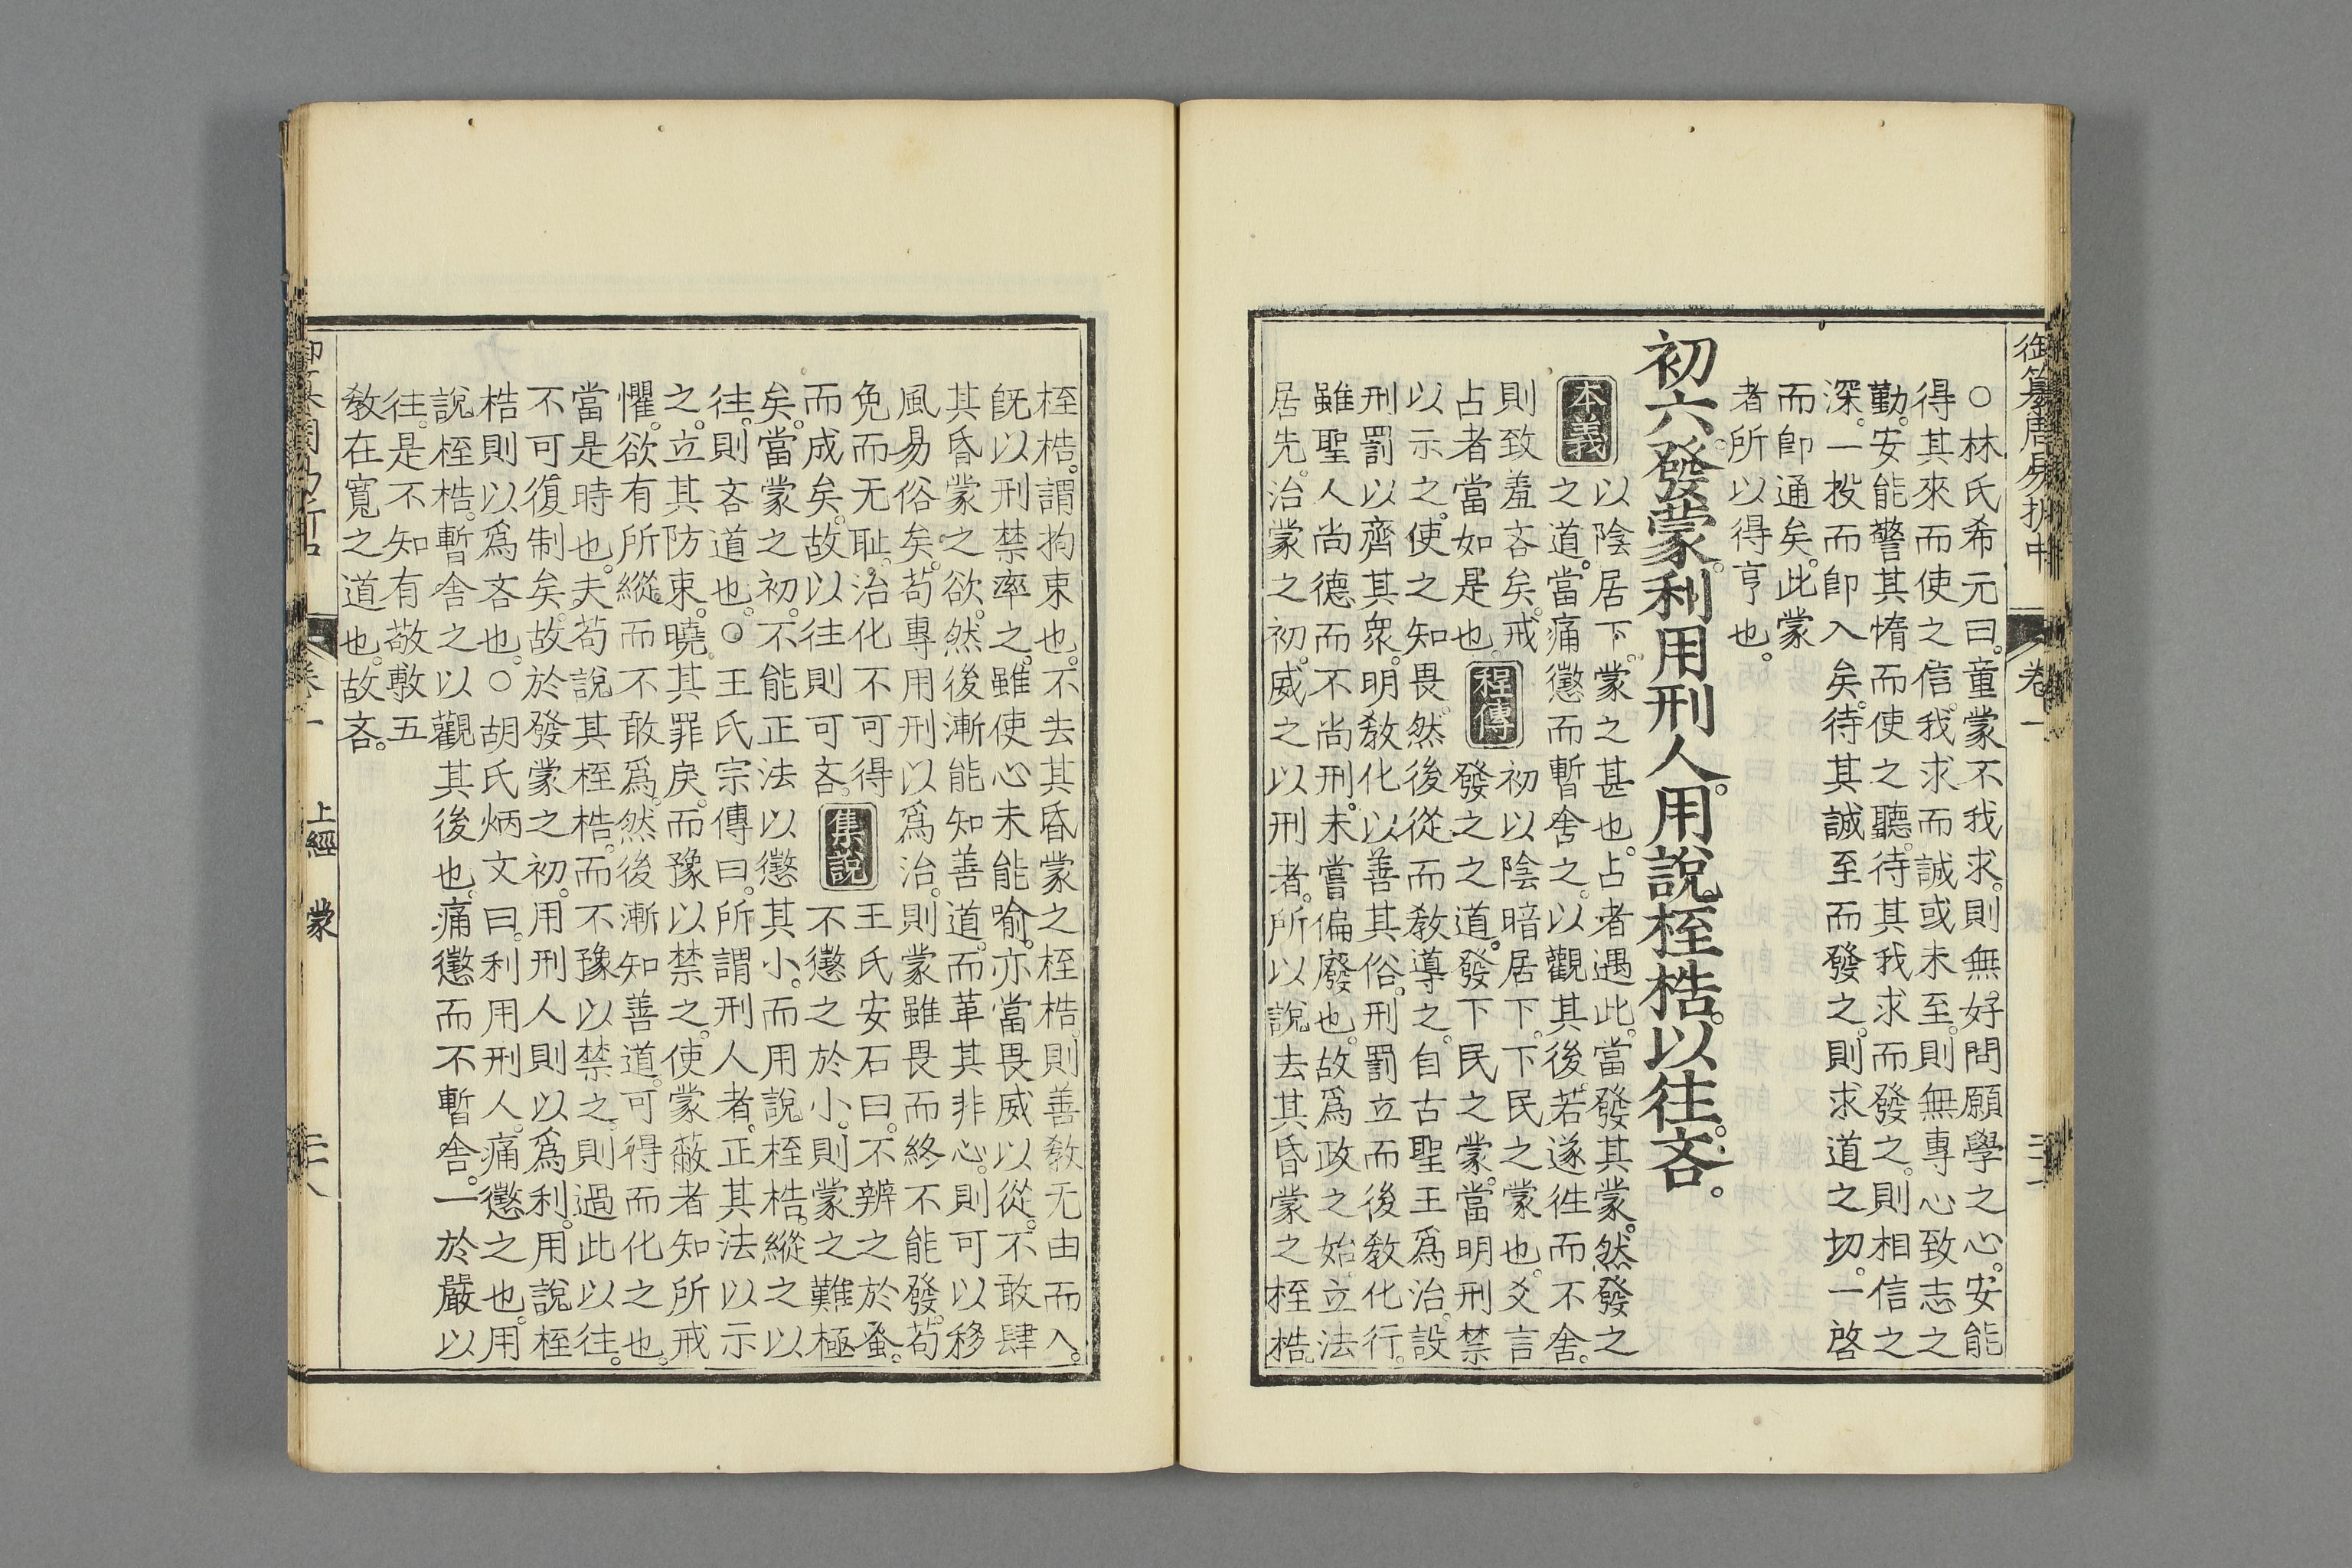 御纂周易折中 卷一
○林氏希元曰。童蒙不我求。則無好問願學之心。安能
得其來而使之信。我求而誠或未至。則無專心致志之
勤。安能警其惰而使之聽。待其我求而發之。則相信之
深。一投而卽入矣。待其誠至而發之。則求道之切。一啓
而卽通矣。此蒙
者所以得亨也。
初六。發蒙。利用刑人。用說桎梏。以往吝。
本義
以陰居下。蒙之甚也。占者遇此。當發其蒙。然發之
之道。當痛懲而暫舍之。以觀其後。若遂徃而不舍。
則致羞吝矣。戒
占者當如是也。
程傳
初以陰暗居下。下民之蒙也。爻言
發之之道。發下民之蒙。當明刑禁
以示之。使之知畏。然後從而敎導之。自古聖王爲治。設
刑罰以齊其衆。明敎化以善其俗。刑罰立而後敎化行。
雖聖人尚德而不尚刑。未嘗偏廢也。故爲政之始。立法
居先。治蒙之初。威之以刑者。所以說去其昏蒙之桎梏。
桎梏。謂拘束也。不去其昏蒙之桎梏。則善敎无由而入。
旣以刑禁率之。雖使心未能喻。亦當畏威以從。不敢肆
其昏蒙之欲。然後漸能知善道。而革其非心。則可以移
風易俗矣。苟專用刑以爲治。則蒙雖畏而終不能發。苟
免而无恥。治化不可得
而成矣。故以往則可吝。
集說
王氏安石曰。不辨之於蚤。
不懲之於小。則蒙之難極
矣。當蒙之初。不能正法以懲其小。而用說桎梏。縱之以
往。則吝道也。○王氏宗傳曰。所謂刑人者。正其法以示
之。立其防束。曉其罪戾。而豫以禁之。使蒙蔽者知所戒
懼。欲有所縱。而不敢爲。然後漸知善道。可得而化之也。
當是時也。夫苟說其桎梏。而不豫以禁之。則過此以往。
不可復制矣。故於發蒙之初。用刑人則以爲利。用說桎
梏則以爲吝也。○胡氏炳文曰。利用刑人。痛懲之也。用
說桎梏。暫舍之以觀其後也。痛懲而不暫舍。一於嚴以
往。是不知有敬敷五
敎在寬之道也。故吝。
卷一 上經 蒙